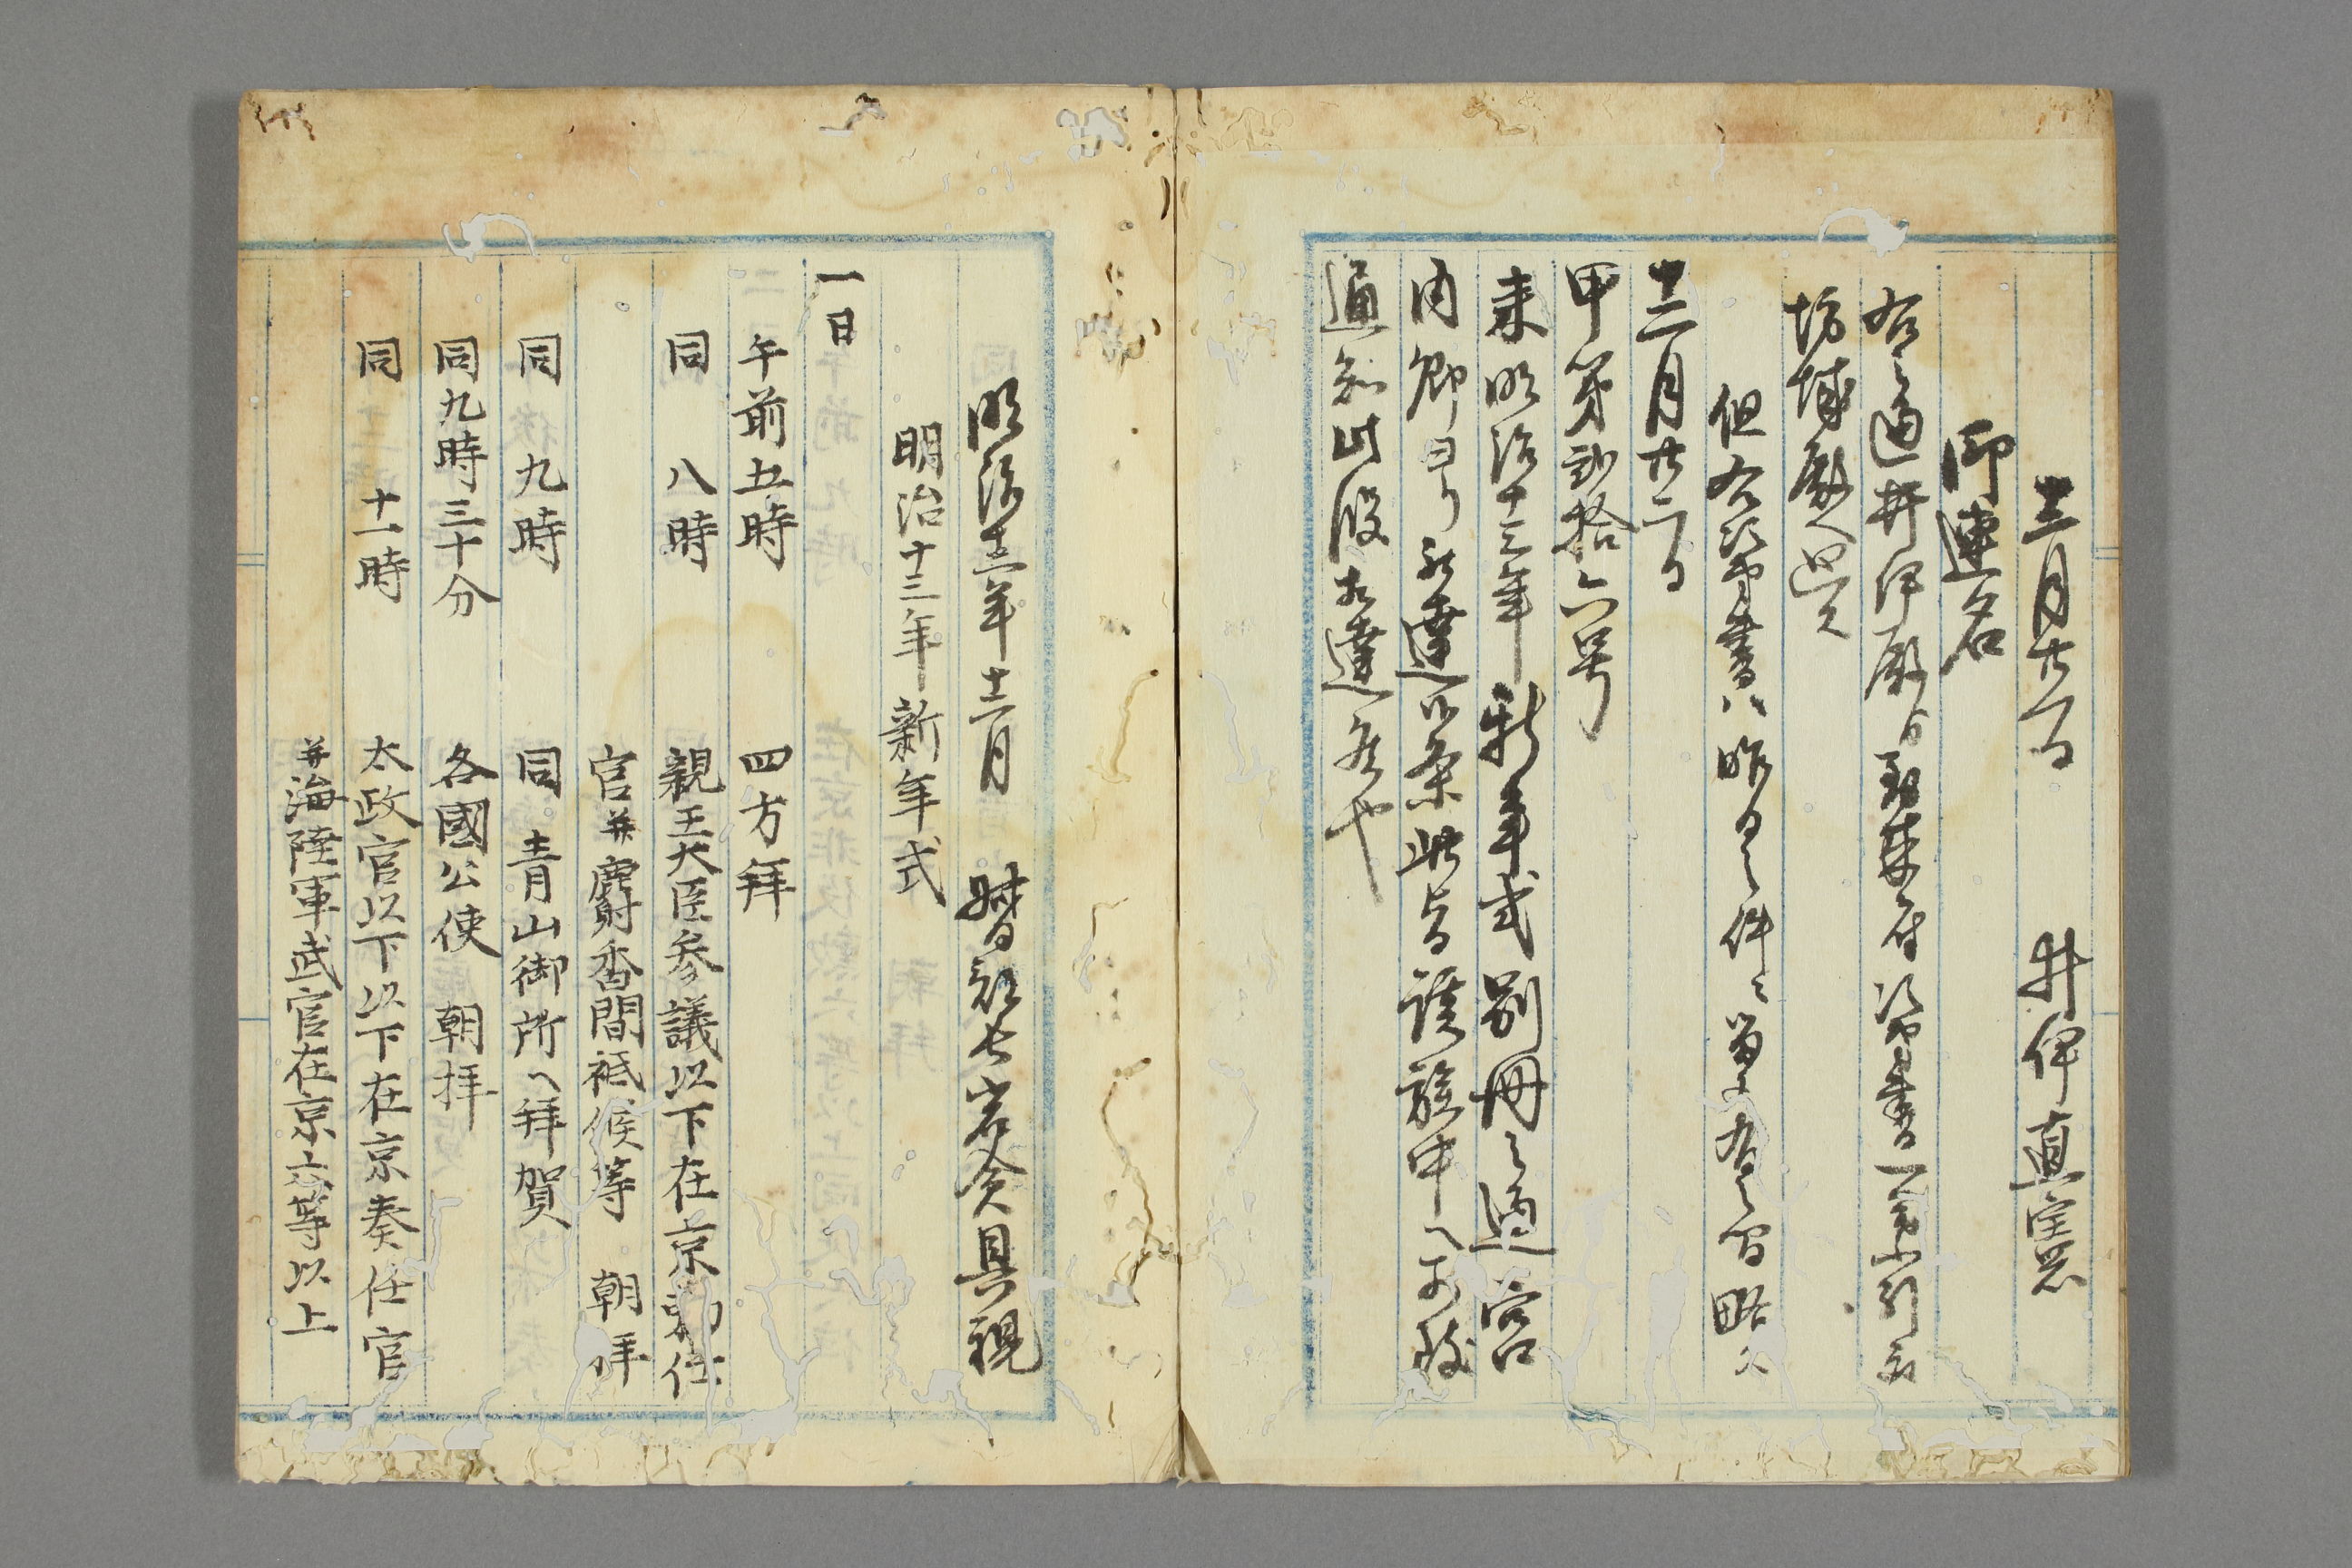 十二月廿一日 井伊直憲
御連名
右之通井伊殿ゟ到来有次第書一冊引受
坊城殿へ廻ス
但右次第書ハ昨日之件ニ留ニ有之間略ス
十二月廿二日
甲第弐拾六号
来明治十三年新年式別冊之通宮
内卿ヨリ被達候条此旨諸族中へ可致
通知此段相達候也
明治十二年十二月 督部長岩倉具視
明治十三年新年式
一日
午前五時 四方拜
同 八時 親王大臣参議以下在京勅任
官并麝香間祗候等 朝拝
同 九時 同青山御所へ拜賀
同九時三十分 各國公使 朝拝
同 十一時 太政官以下以下在京奏任官
并海陸軍武官在京六等以上